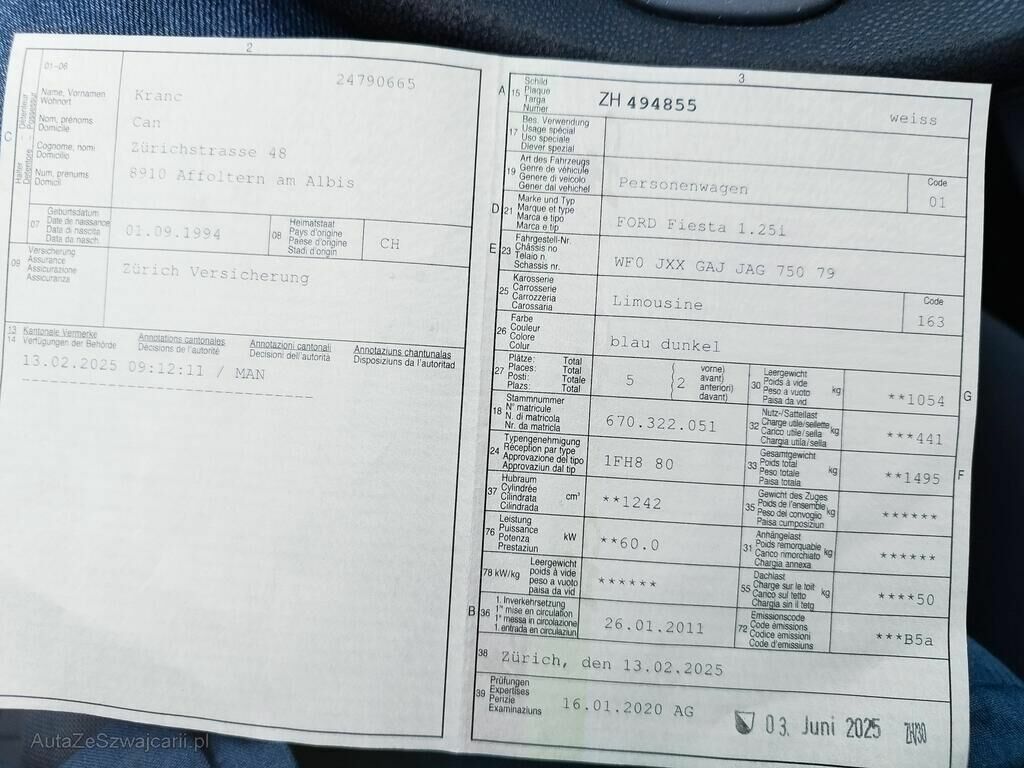 2
01-06
24790665
C
Halter Détenteur
Detentore Possessur
Name, Vornamen
Wohnort
Nom, prénoms
Domicile
Cognome, nomi
Domicilio
Num, prenums
Domicil
Kranc
Can
Zürichstrasse 48
8910 Affoltern am Albis
07
Geburtsdatum
Date de naissance
Data di nascita
Data da nasch.
01.09.1994
08
Heimatstaat
Pays d'origine
Paese d'origine
Stadi d'origin
CH
09
Versicherung
Assurance
Assicurazione
Assicuranza
Zürich Versicherung
13
14
Kantonale Vermerke
Verfügungen der Behörde
Annotations cantonales
Décisions de l'autorité
Annotazioni cantonali
Decisioni dell'autorità
Annotaziuns chantunalas
Disposiziuns da l'autoritad
13.02.2025 09:12:11 / MAN
3
A
15
Schild
Plaque
Targa
Numer
ZH 494855
weiss
17
Bes. Verwendung
Usage spécial
Uso speciale
Diever spezial
19
Art des Fahrzeugs
Genre de véhicule
Genere di veicolo
Gener dal vehichel
Personenwagen
Code
01
D
21
Marke und Typ
Marque et type
Marca e tipo
Marca e tip
FORD Fiesta 1.25i
E
23
Fahrgestell-Nr.
Châssis no
Telaio n.
Schassis nr.
WF0 JXX GAJ JAG 750 79
25
Karosserie
Carrosserie
Carrozzeria
Carossaria
Limousine
Code
163
26
Farbe
Couleur
Colore
Colur
blau dunkel
27
Plätze: Total
Places: Total
Posti: Totale
Plazs: Total
5
2
vorne)
avant)
anteriori)
davant)
30
Leergewicht
Poids à vide
Peso a vuoto
Paisa da vid
kg
**1054
G
18
Stammnummer
N° matricule
N. di matricola
Nr. da matricla
670.322.051
32
Nutz-/Sattellast
Charge utile/sellette
Carico utile/sella
Chargia utila/sella
kg
***441
24
Typengenehmigung
Réception par type
Approvazione del tipo
Approvaziun dal tip
1FH8 80
33
Gesamtgewicht
Poids total
Peso totale
Paisa totala
kg
**1495
F
37
Hubraum
Cylindrée
Cilindrata
Cilindrada
cm³
**1242
35
Gewicht des Zuges
Poids de l'ensemble
Peso del convoglio
Paisa cumposiziun
kg
******
76
Leistung
Puissance
Potenza
Prestaziun
kW
**60.0
31
Anhängelast
Poids remorquable
Carico rimorchiato
Chargia annexa
kg
******
78 kW/kg
Leergewicht
poids à vide
peso a vuoto
paisa da vid
******
55
Dachlast
Charge sur le toit
Carico sul tetto
Chargia sin il tetg
kg
****50
B
36
1. Inverkehrsetzung
1re mise en circulation
1a messa in circolazione
1. entrada en circulaziun
26.01.2011
72
Emissionscode
Code émissions
Codice emissioni
Code d'emissiuns
***B5a
38
Zürich, den 13.02.2025
39
Prüfungen
Expertises
Perizie
Examinaziuns
16.01.2020 AG
03. Juni 2025
ZH/30
AutaZeSzwajcarii.pl